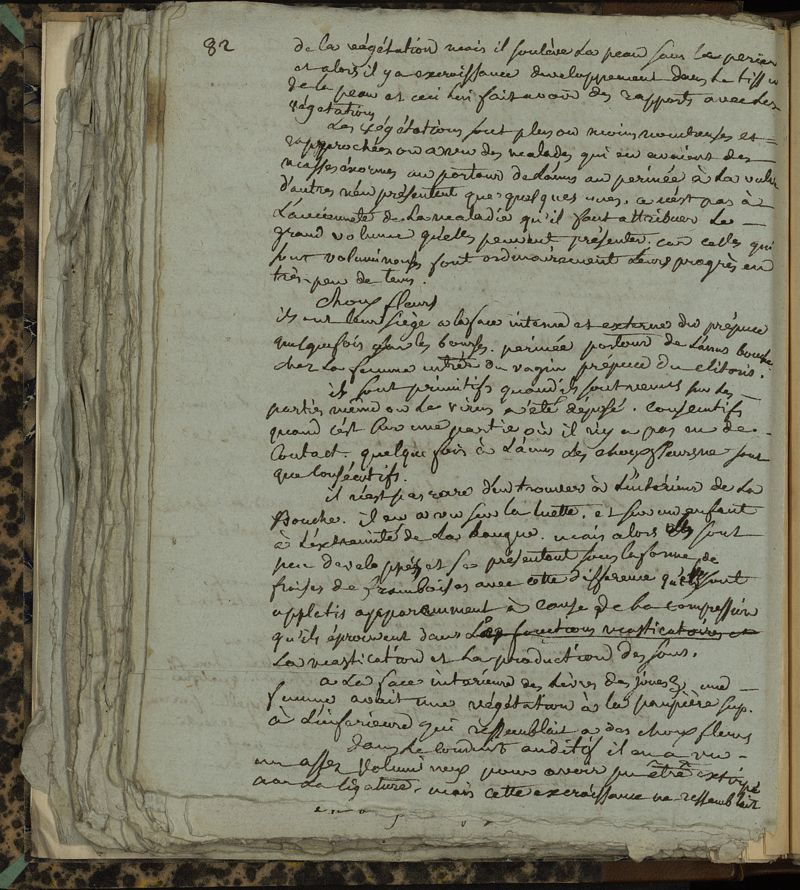 82
de la végétation mais il soulève la peau sous le perin
et alors il y a excroissance developpement dans le tissu
de la peau et ceci lui fait avoir des rapports avec les
végétations
Les végétations sont plus ou moins nombreuses et
rapprochées on a vu des malades qui en avoient des
masses énormes au portour de l'anus au perinée à la vulve
d'autres n'en présentent que quelques unes. ce n'est pas à
l'ancienneté de la maladie qu'il faut attribuer le
grand volume qu'elles peuvent présenter. car celles qui
sont volumineuses font ordinairement leurs progrès en
très peu de tems.
Choux fleurs
ils ont leur siège a la face interne et externe du prépuce
quelquefois sur les bourses. perinée portour de l'anus bouche
chez la femme entrée du vagin prépuce du clitoris.
ils sont primitifs quand ils sont venus sur les
parties même ou le virus a été déposé. consécutifs
quand c'est sur une partie où il n'y a pas eu de
contact. quelque fois à l'anus les choux fleurs ne sont
que consécutifs.
il n'est pas rare d'en trouver à l'intérieur de la
Bouche. il en a vu sur la luette. et sur un enfant
à l'extremité de la langue. mais alors ils sont
peu developpés et se présentent sous la forme de
fraises de framboises avec cette difference qu'ils sont
applatis apparemment à cause de la compression
qu'ils éprouvent dans les fonctions masticatoires et
la mastication et la production des sons.
a la face interieure des lèvres des joues, une
femme avait une végétation à la paupière sup.
à l'inferieure qui ressemblait a des choux fleurs
dans le conduit auditif il en a vu
un assez volumineux pour avoir pu être extirpé
par la ligature. mais cette excroissance ne ressemblait